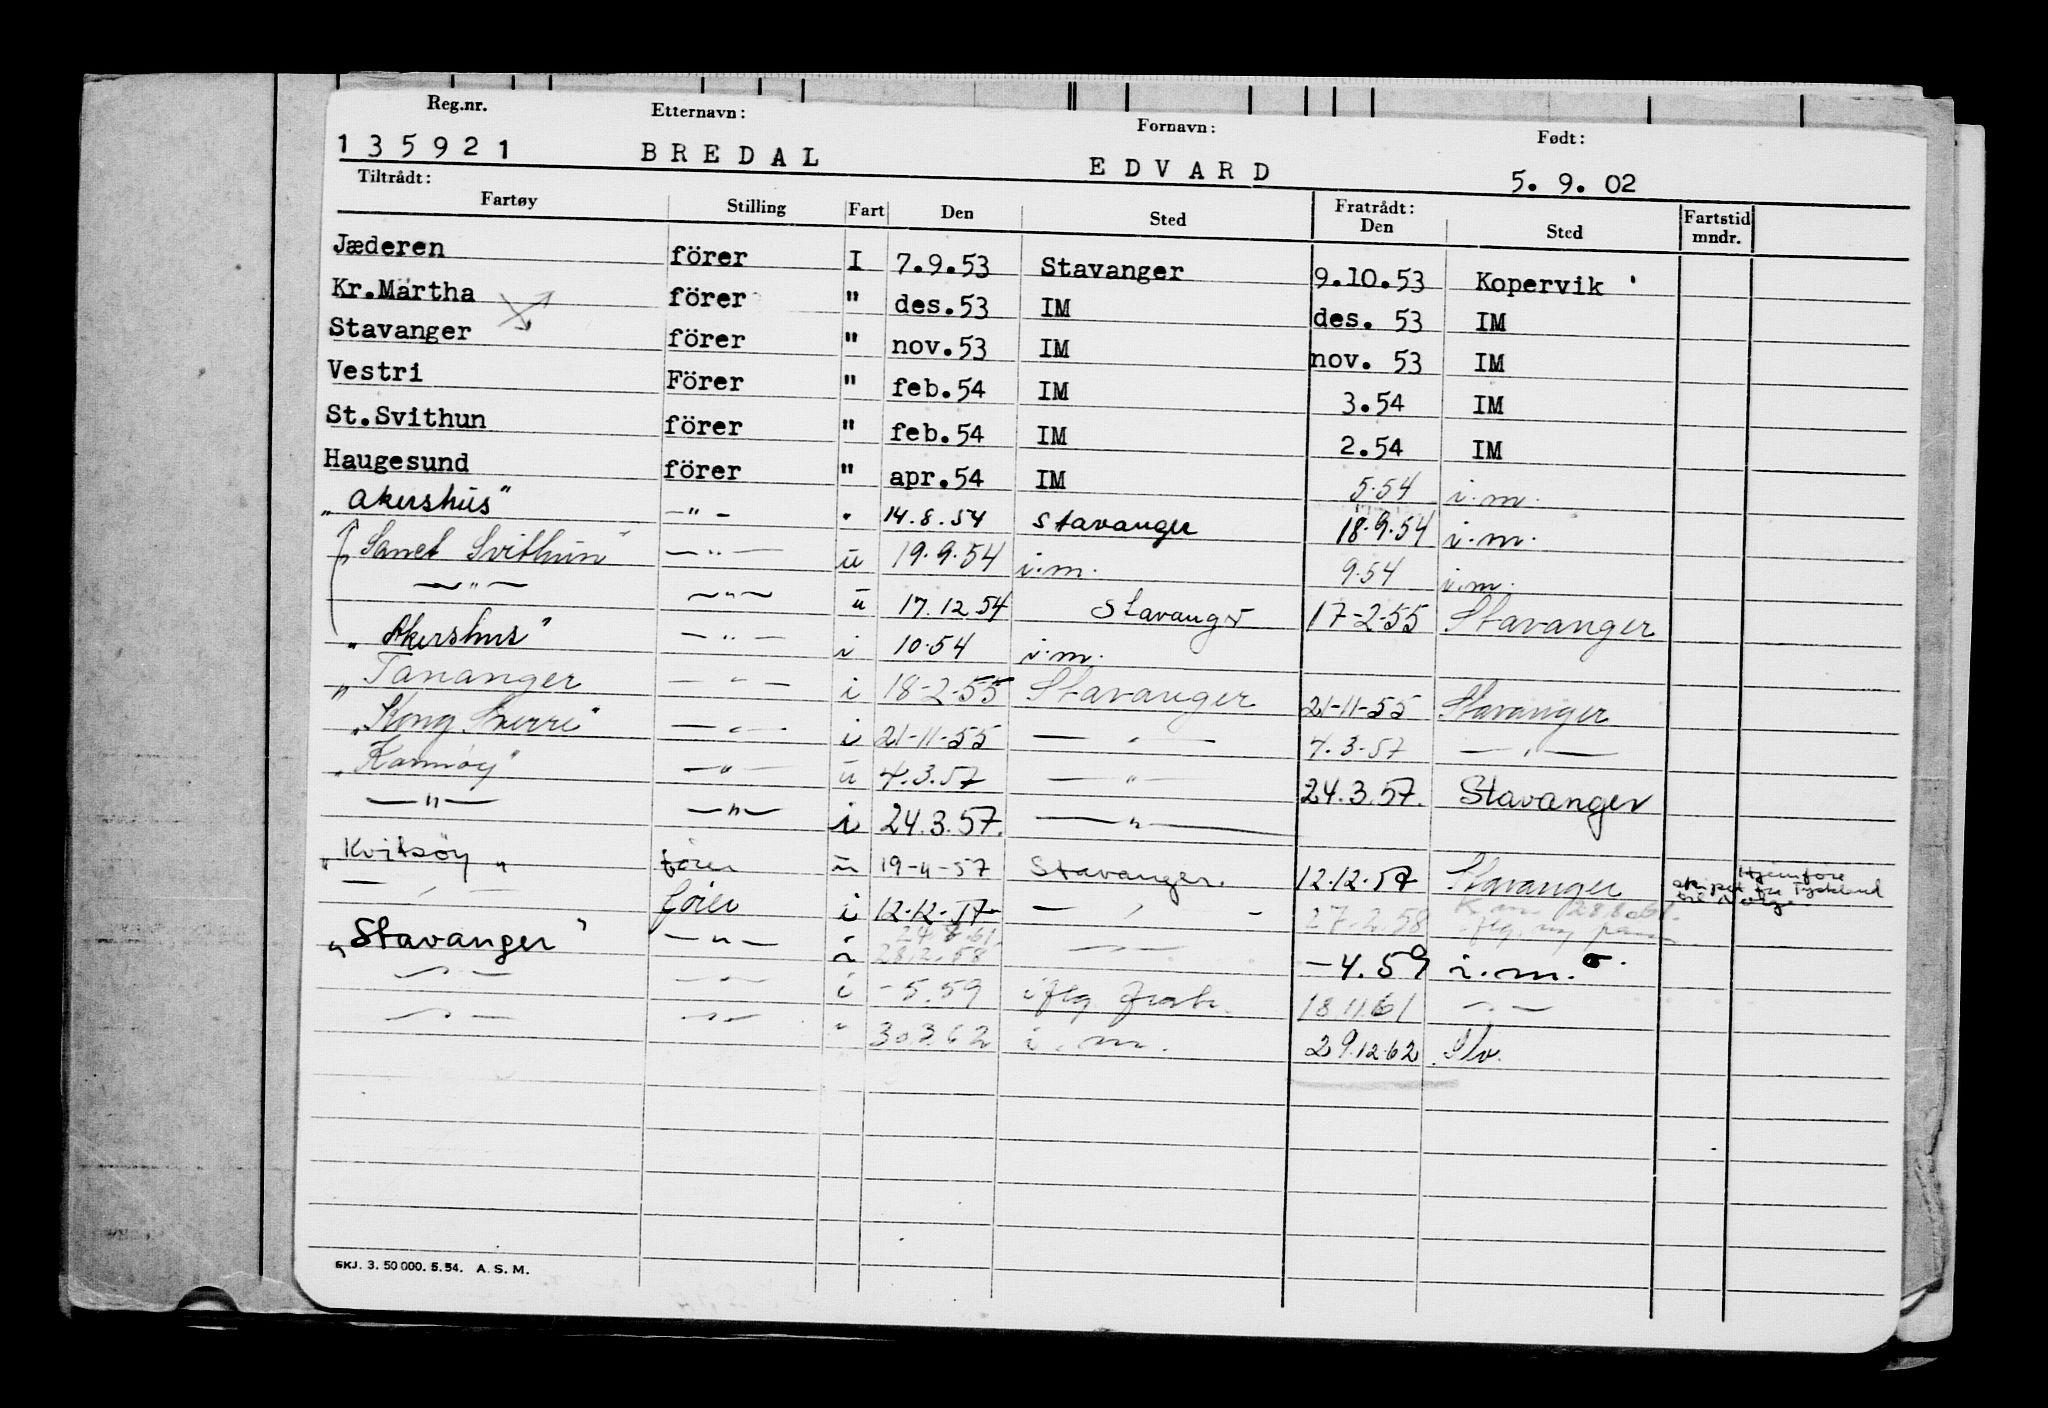 Reg.nr. Etternavn: Fornavn: Født:
135921 BREDAL EDVARD 5. 9. 02
Tiltrådt: Fratrådt:
Fartøy Stilling Fart Den Sted Den Sted Fartstid mndr.
Jæderen förer I 7.9.53 Stavanger 9.10.53 Kopervik
Kr.Märtha förer " des.53 IM des. 53 IM
Stavanger förer " nov.53 IM nov. 53 IM
Vestri Förer " feb.54 IM 3.54 IM
St.Svithun förer " feb.54 IM 2.54 IM
Haugesund förer " apr.54 IM 5.54 i.m.
"Akershus" -"- " 14.8.54 Stavanger 18.9.54 i.m.
"Sanct Svithun" -"- u 19.9.54 i.m. 9.54 i.m.
-"- -"- u 17.12.54 Stavanger 17-2-55 Stavanger
"Akershus" -"- i 10.54 i.m.
"Tananger -"- i 18-2-55 Stavanger 21-11-55 Stavanger
"Kong Sverre" -"- i 21-11-55 -"- 4.3.57 -"-
"Karmøy" -"- u 4.3.57 -"- 24.3.57. Stavanger
-"- -"- i 24.3.57. -"-
"Kvitsøy" fører u 19-11-57 Stavanger. 12.12.57 Stavanger Hjemføre skipet fra Tyskland til Norge.
-"- fører i 12-12-57 -"- 27.2.58
"Stavanger" -"- i 28.2.58 -"- -4.59 i.m.
-"- -"- i -5.59 i flg. 18.11.61 -"-
-"- -"- " 30.3.62 i.m. 29.12.62 Stv.
SKJ. 3. 50 000. 5.54. A. S. M.